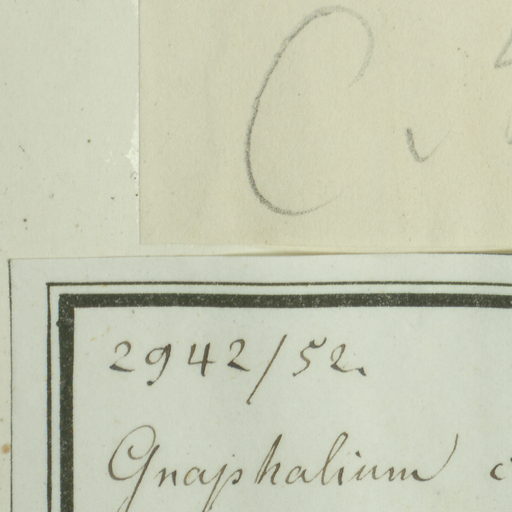 C.
2942/52.
Gnaphalium